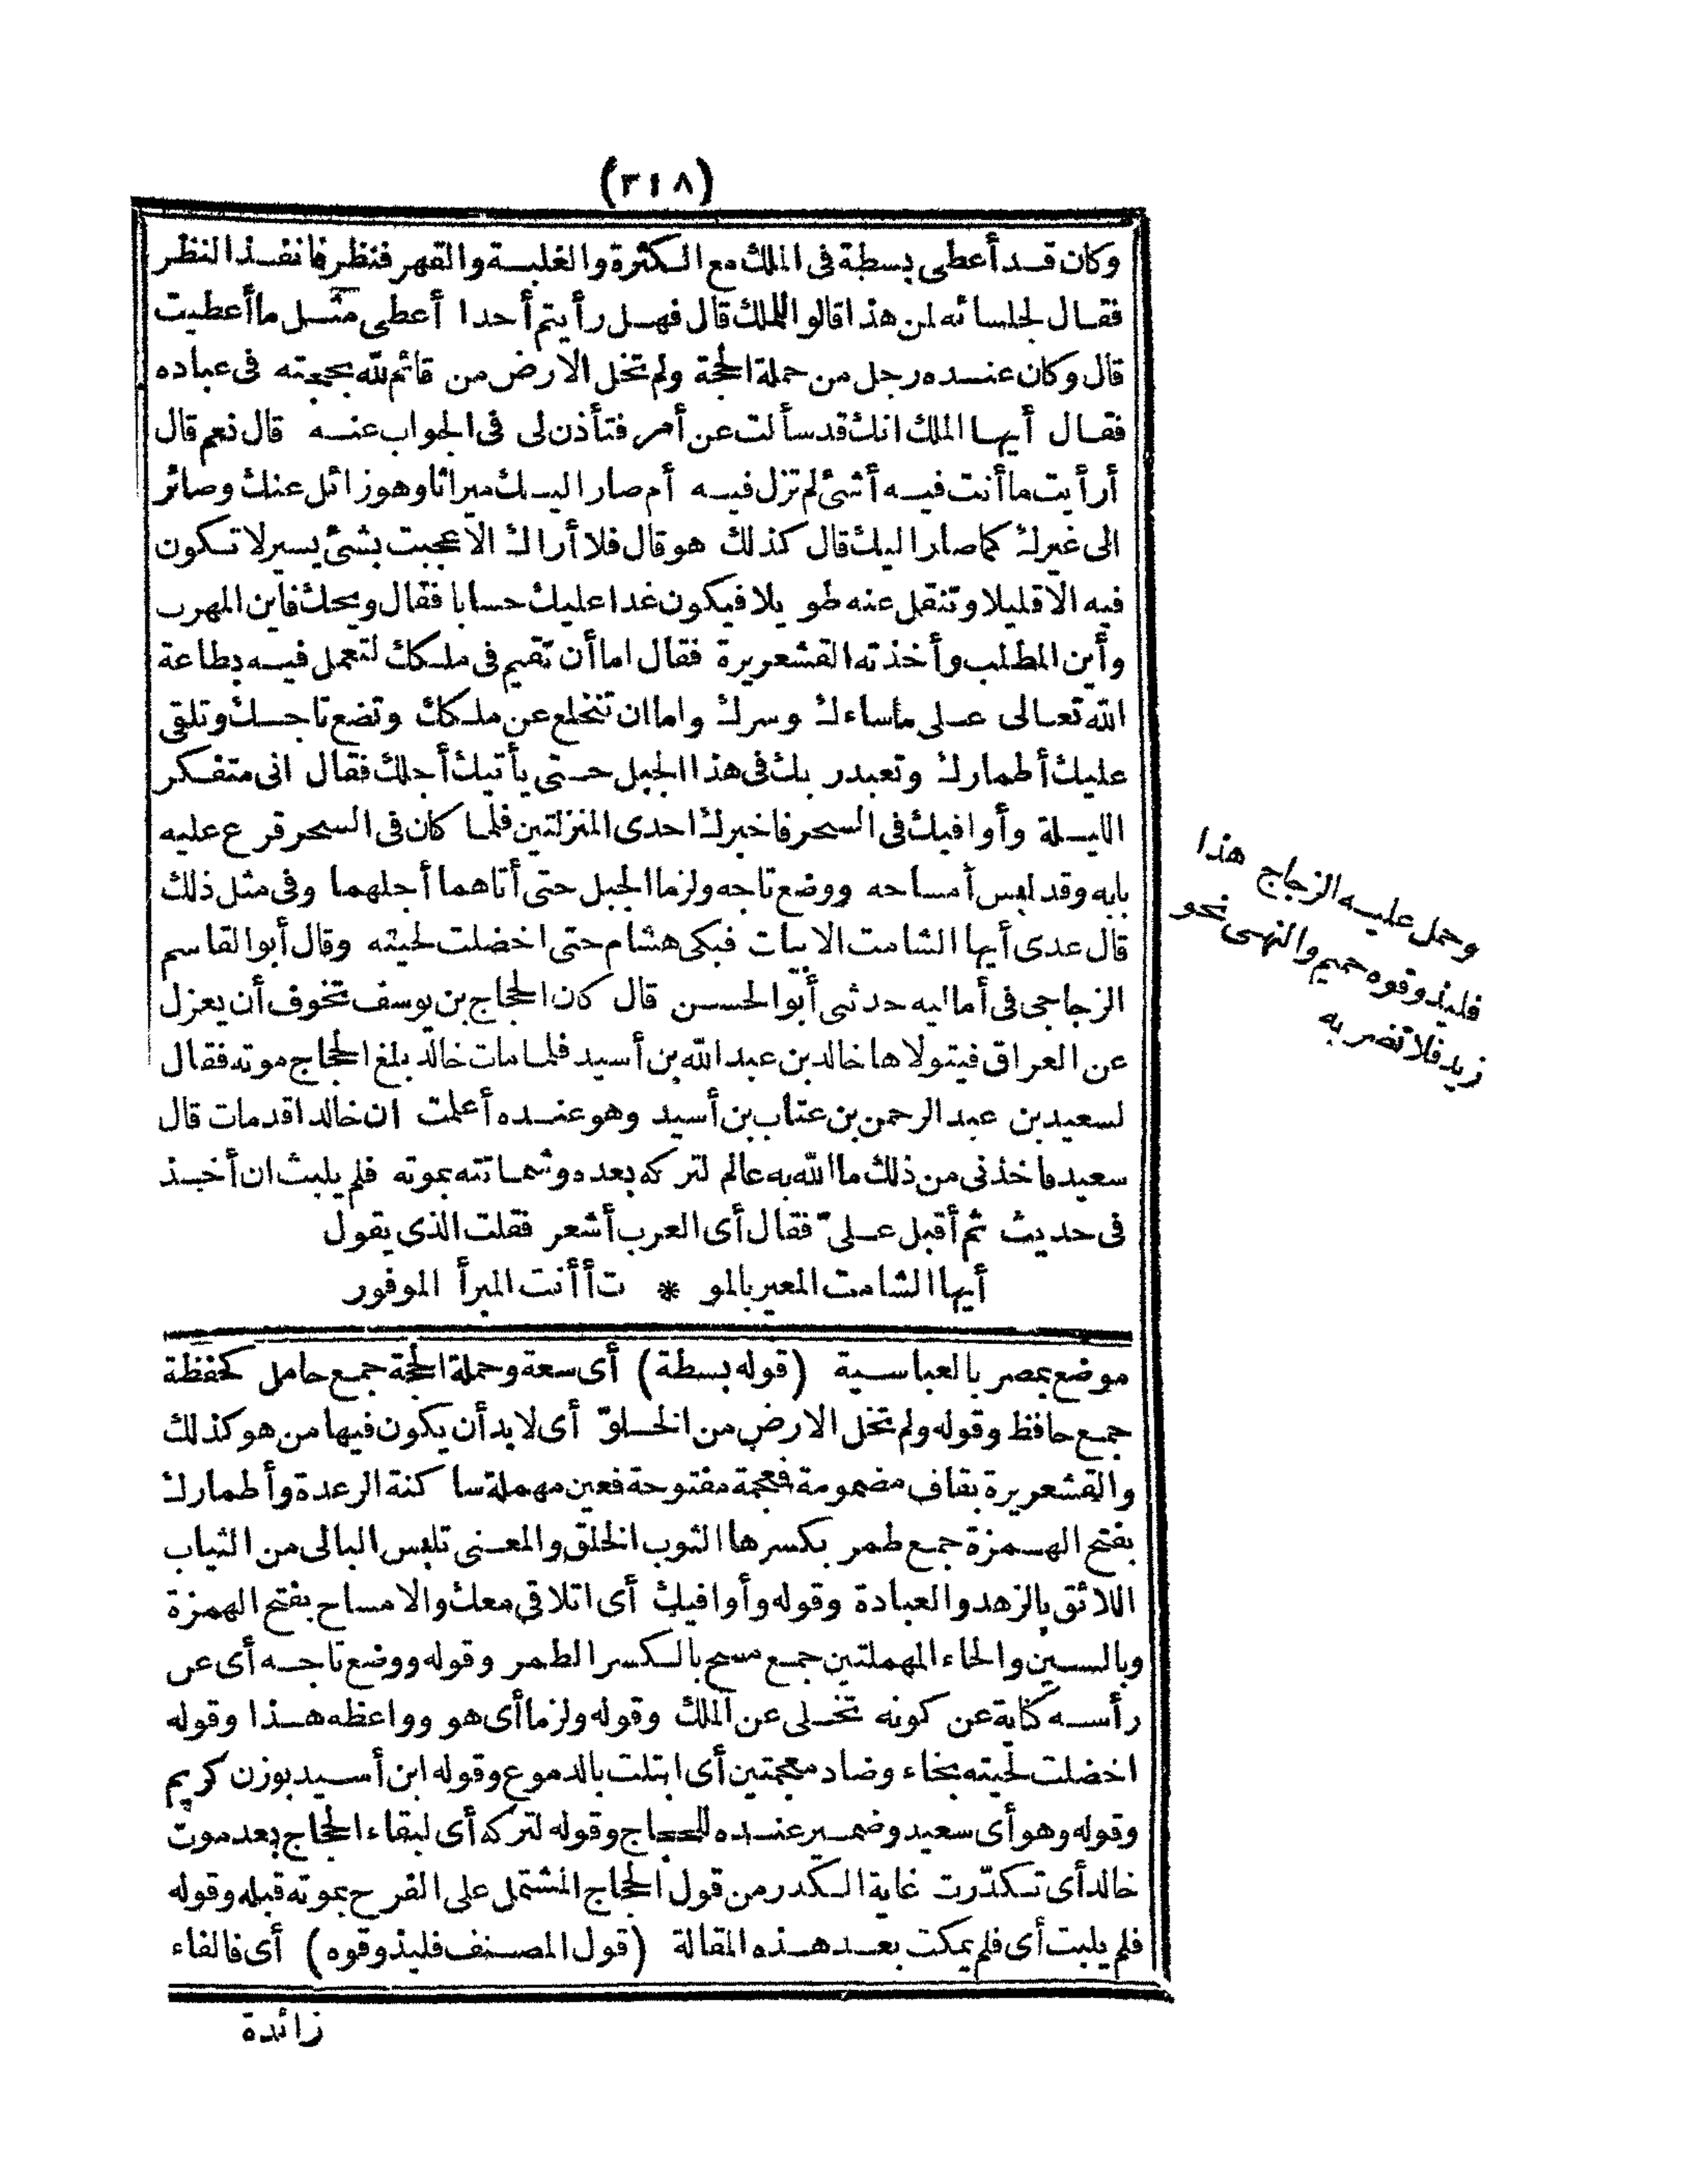 (٣١٨)
وكان قد أعطى بسطة فى الملك مع الكثرة والغلبة والقهر فنظر فانفذ النظر
فقال لجلسائه لمن هذا قالوا للملك قال فهل رأيتم أحدا أعطى مثل ما أعطيت
قال وكان عنده رجل من حملة الحجة ولم تخل الارض من قائم لله بحجته فى عباده
فقال أيها الملك انك قد سألت عن أمر فتأذن لى فى الجواب عنه قال نعم قال
أرأيت ما أنت فيه أشئ لم تزل فيه أم صار اليك ميراثا وهو زائل عنك وصائر
الى غيرك كما صار اليك قال كذلك هو قال فلا أراك الا عجبت بشئ يسير لا تكون
فيه الا قليلا وتنقل عنه طويلا فيكون غدا عليك حسابا فقال ويحك فأين المهرب
وأين المطلب وأخذته القشعريرة فقال اما أن تقيم فى ملكك لتعمل فيه بطاعة
الله تعالى على ما ساءك وسرك واما ان تنخلع عن ملكك وتضع تاجك وتلقى
عليك أطمارك وتعبد ربك فى هذا الجبل حتى يأتيك أجلك فقال انى متفكر
الليلة وأوافيك فى السحر فاخبرك احدى المنزلتين فلما كان فى السحر قرع عليه
بابه وقد لبس أمساحه ووضع تاجه ولزما الجبل حتى أتاهما أجلهما وفى مثل ذلك
قال عدى أيها الشامت الابيات فبكى هشام حتى اخضلت لحيته وقال أبو القاسم
الزجاجى فى أماليه حدثنى أبو الحسن قال كان الحجاج بن يوسف تخوف أن يعزل
عن العراق فيتولاها خالد بن عبد الله بن أسيد فلما مات خالد بلغ الحجاج موته فقال
لسعيد بن عبد الرحمن بن عتاب بن أسيد وهو عنده أعلمت ان خالدا قد مات قال
سعيد فاخذنى من ذلك ما الله به عالم لتركه بعده وشماتته بموته فلم يلبث ان أخذ
فى حديث ثم أقبل علىّ فقال أى العرب أشعر فقلت الذى يقول
أيها الشامت المعير بالمو * ت أأنت المبرأ الموفور
وحمل عليه الزجاج هذا
فليذوقوه حميم والنهى نحو
زيد فلا تضربه
موضع بمصر بالعباسية (قوله بسطة) أى سعة وحملة الحجة جمع حامل كحفظة
جمع حافظ وقوله ولم تخل الارض من الخلوّ أى لابد أن يكون فيها من هو كذلك
والقشعريرة بقاف مضمومة فمعجمة مفتوحة فعين مهملة ساكنة الرعدة وأطمارك
بفتح الهمزة جمع طمر بكسرها الثوب الخلق والمعنى تلبس البالى من الثياب
اللائق بالزهد والعبادة وقوله وأوافيك أى اتلاقى معك والامساح بفتح الهمزة
وبالسين والحاء المهملتين جمع مسح بالكسر الطمر وقوله ووضع تاجه أى عن
رأسه كناية عن كونه تخلى عن الملك وقوله ولزما أى هو وواعظه هذا وقوله
اخضلت لحيته بخاء وضاد معجمتين أى ابتلت بالدموع وقوله ابن أسيد بوزن كريم
وقوله وهو أى سعيد وضمير عنده للحجاج وقوله لتركه أى لبقاء الحجاج بعد موت
خالد أى تكدّرت غاية الكدر من قول الحجاج المشتمل على الفرح بموته قبله وقوله
فلم يلبث أى فلم يمكث بعد هذه المقالة (قول المصنف فليذوقوه) أى فالفاء
زائدة